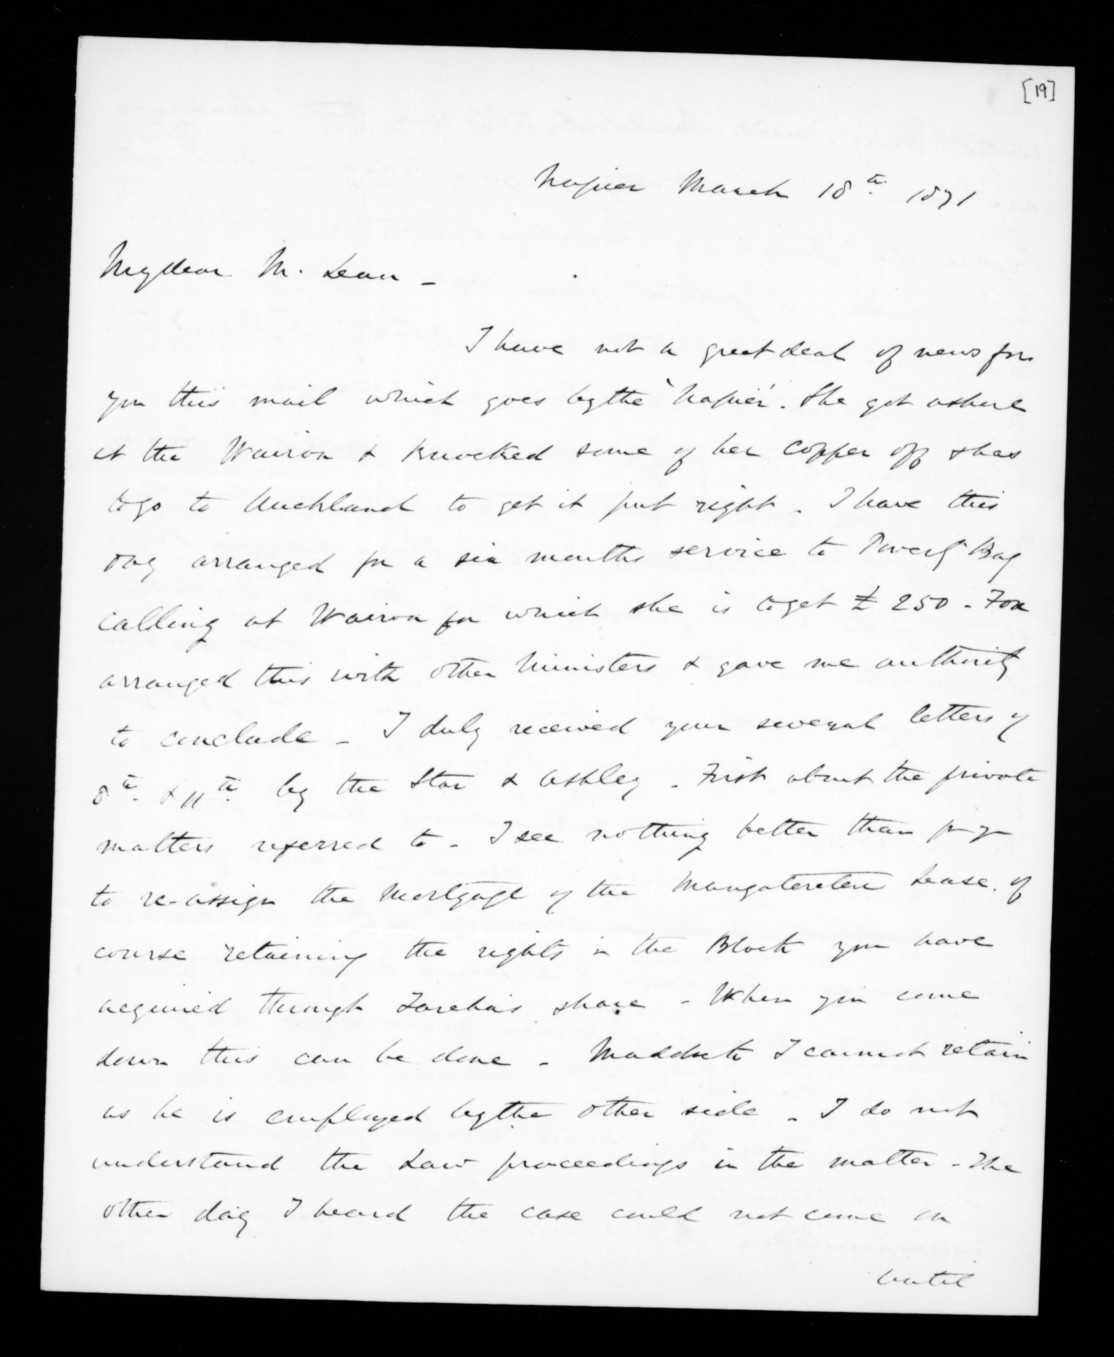 [19]
Napier March 18th 1871
My dear McLean -
I have not a great deal of news for
you this mail which goes by the "Napier". She got ashore
at the Wairoa & knocked some of her copper off & has
to go to Auckland to get it put right. I have this
day arranged for a six months service to Poverty Bay
calling at Wairoa for which she is to get £250 - Fox
arranged this with other Ministers & gave me authority
to conclude - I duly received your several letters of
8th & 11th by the Star & Ashley. First about the private
matters referred to. I see nothing better than for you
to re-assign the Mortgage of the Mangateretere Lease, of
course retaining the rights in the Block you have
acquired through Tareha's share - When you come
down this can be done - I cannot retain
as he is employed by the other side - I do not
understand the Law proceedings in the matter - The
other day I heard the case could not come on
until